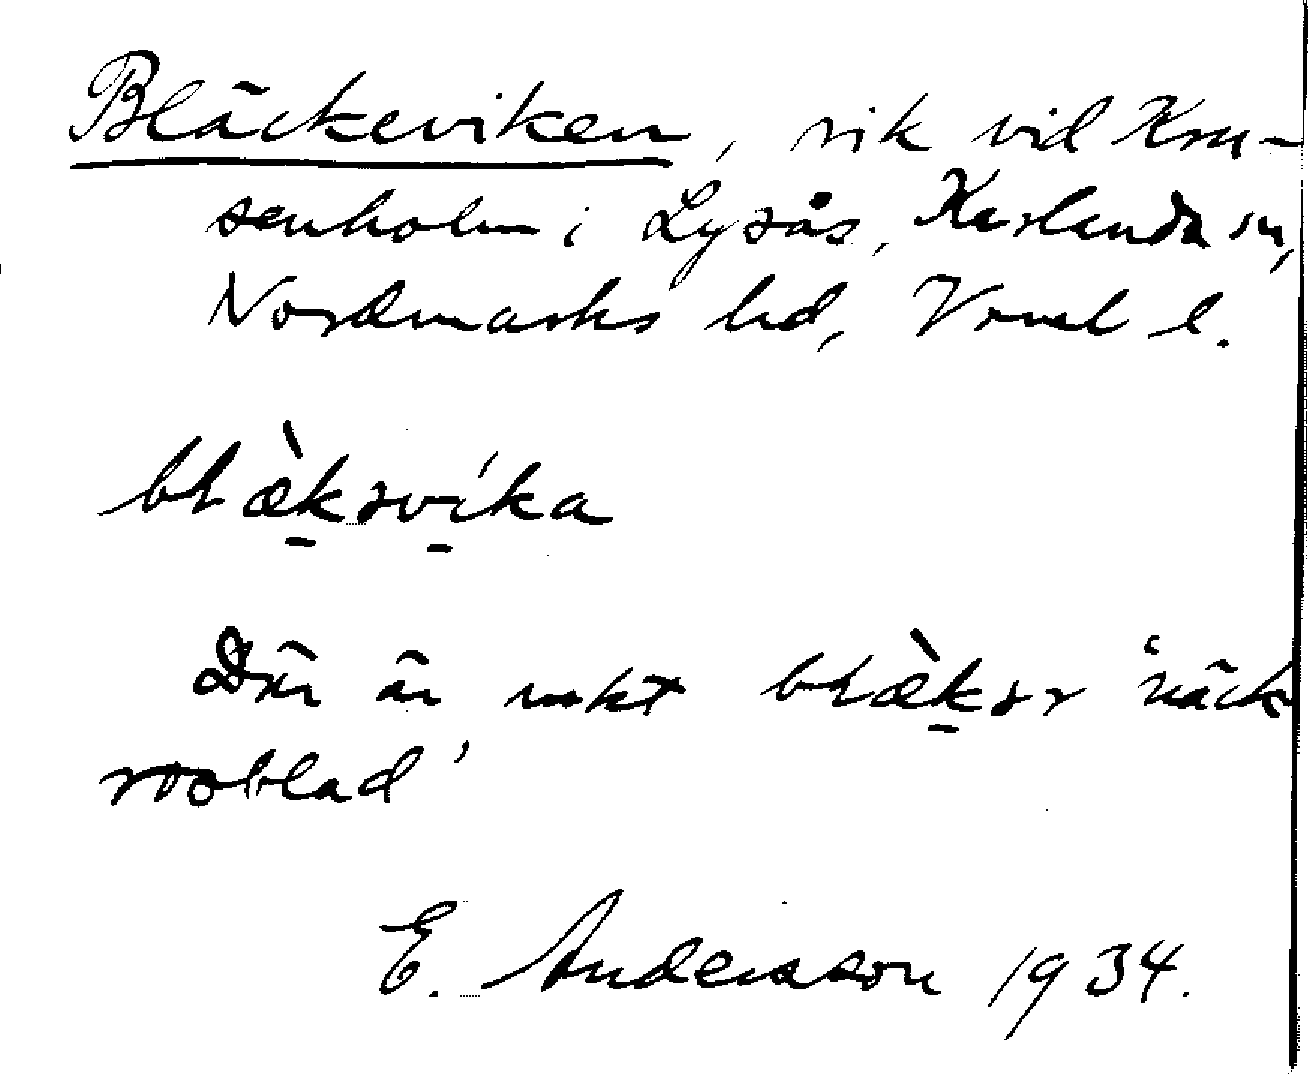 Bläckeviken, vik vid Kru-
senholm i Lysås, Karlanda sn,
Nordmarks hd, Vrml l.
blæ̀kəvíka
Där är mkt blæ̀kər 'näck
rosblad'
E. Andersson 1934.